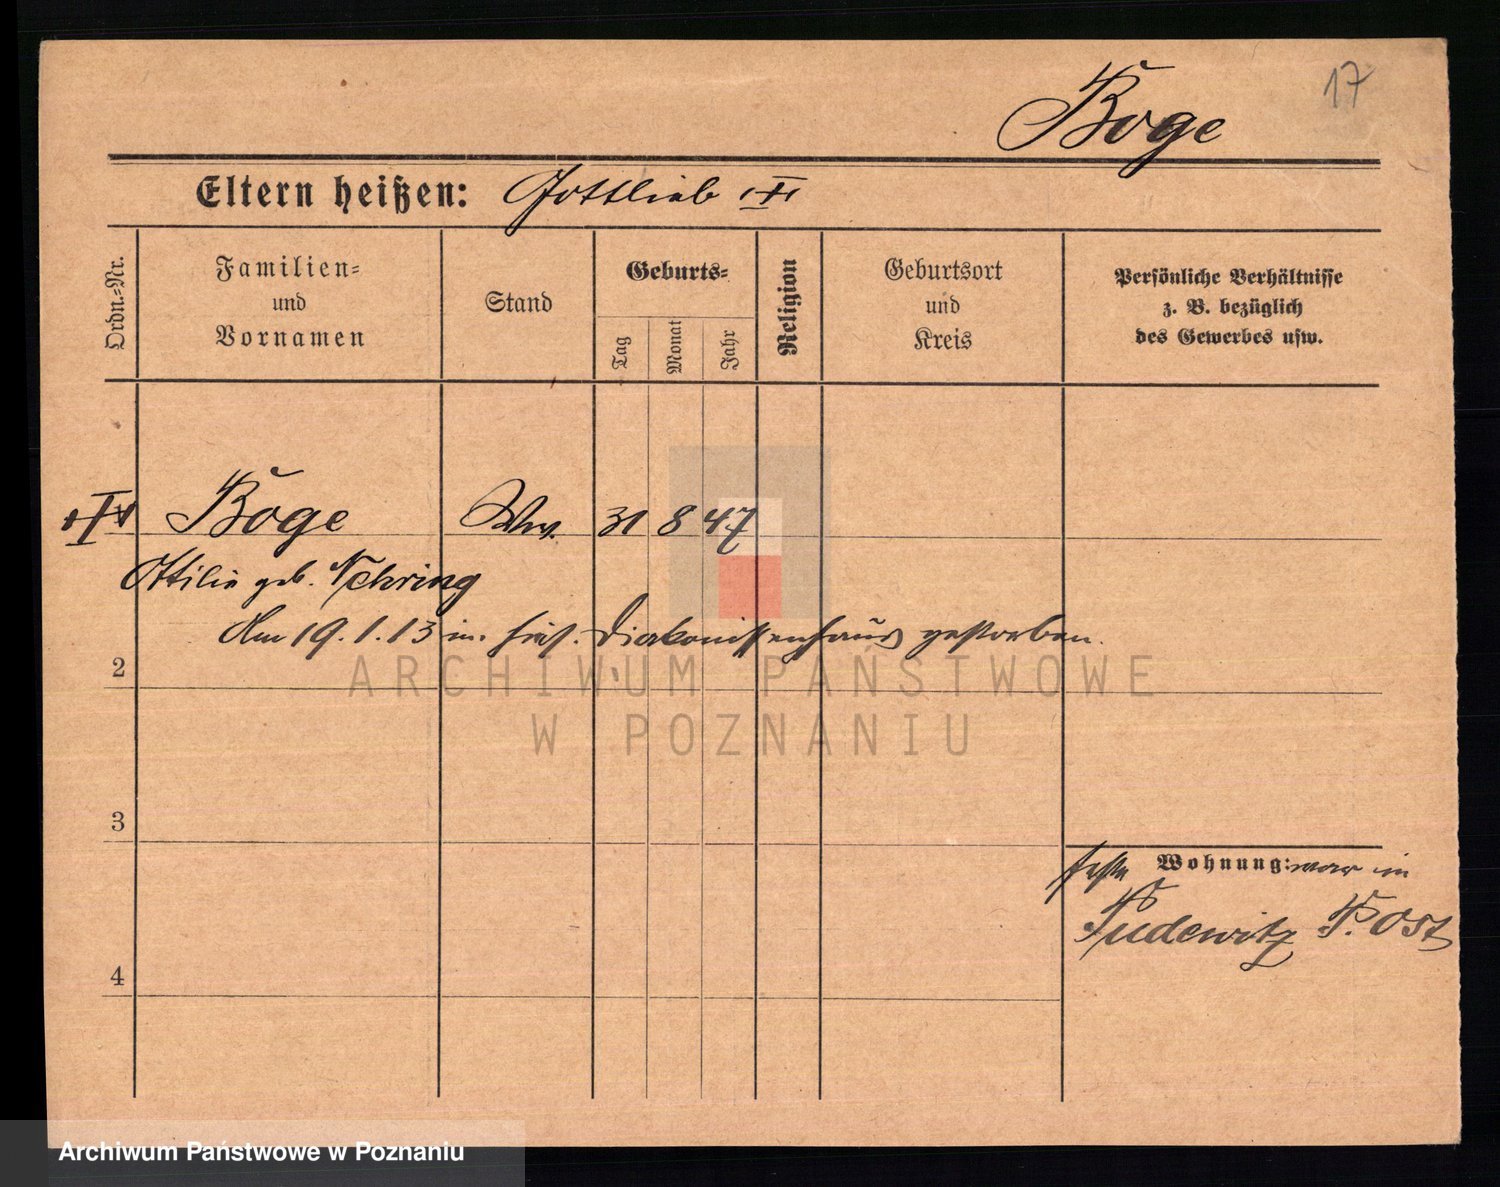 17
Boge
Eltern heißen: Gottlieb
Ordn.-Nr.
Familien-
und
Vornamen
Stand
Geburts-
Tag
Monat
Jahr
Religion
Geburtsort
und
Kreis
Persönliche Verhältnisse
z. B. bezüglich
des Gewerbes usw.
Boge Ww. 31 8 47
Ottilie geb. Nehring
Am 19.1.13 im hies. Diakonissenhaus gestorben.
2
ARCHIWUM PAŃSTWOWE
W POZNANIU
3
Wohnung: war in
Pudewitz P. Ost
4
Archiwum Państwowe w Poznaniu